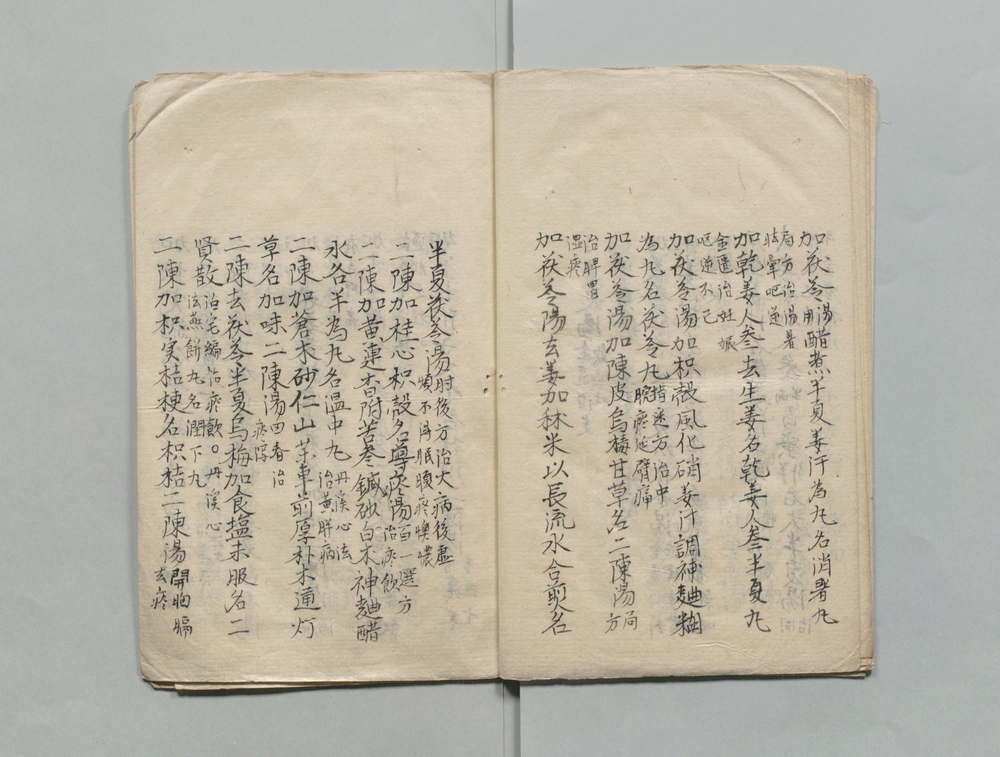 加茯苓湯用醋煮半夏姜汁為丸名消暑丸
局方治湯暑
眩暈呃逆
加乾姜人叄去生姜名乾姜人叄半夏丸
金匱治妊娠
呕逆不已
加茯苓湯加枳殼風化硝姜汁調神麯糊
為丸名茯苓丸指迷方治中
脘痰延臂痛
加茯苓湯加陳皮烏梅甘草名二陳湯局方
治脾胃
湿痰
加茯苓陽去姜加秫米以長流水合煎名
半夏茯苓湯肘後方治大病後虛
煩不得眠頤痰燠憹
二陳加桂心枳殼名導痰陽百一選方
治痰飲
二陳加黃連香附苦叄鍼砂白朮神麯醋
水各半為丸名温中丸丹溪心法
治黃胖病
二陳加蒼朮砂仁山茶車前厚朴木通灯
草名加味二陳湯回春治
痰泻
二陳去茯苓半夏烏梅加食塩末服名二
賢散治宅編治痰飲。丹溪心
法燕餅丸名潤下丸
二陳加枳实桔梗名枳桔二陳湯開胸膈
去疼